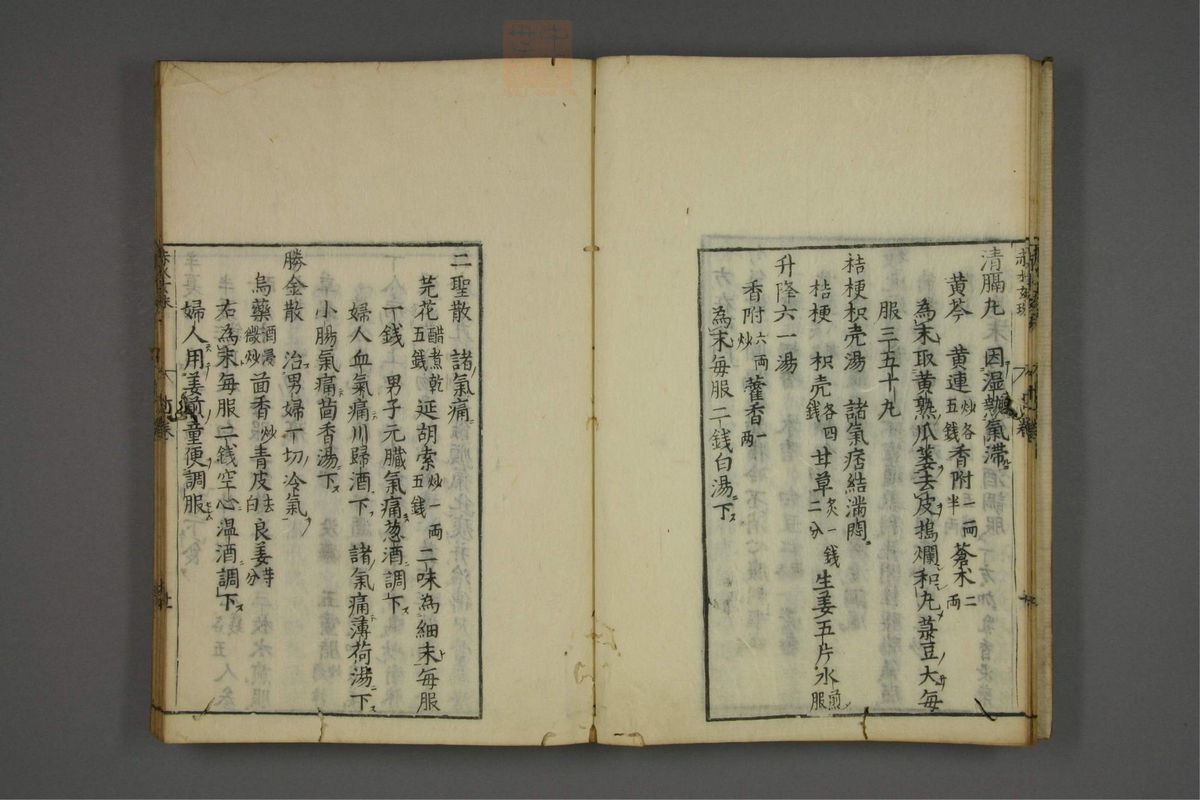 清膈丸　因湿熱氣滯
黄芩　黄連炒各五銭香附一両半蒼朮二両
為末取黄熟瓜蔞去皮搗爛和丸菉豆大每
服三五十丸
桔梗枳壳湯　諸氣痞結満悶
桔梗　枳壳各四銭甘草炙一銭二分生姜五片水煎服
升降六一湯
香附六両炒藿香一両
為末每服二銭白湯下
二聖散　諸氣痛
芫花醋煮乾五銭延胡索炒一両五銭二味為細末每服
一銭　男子元臓氣痛葱酒調下
婦人血氣痛川歸酒下　諸氣痛薄荷湯下
小腸氣痛茴香湯下
勝金散　治男婦一切冷氣
烏藥酒浸微炒茴香炒青皮去白良姜等分
右為末每服二銭空心温酒調下
婦人用姜煎童便調服